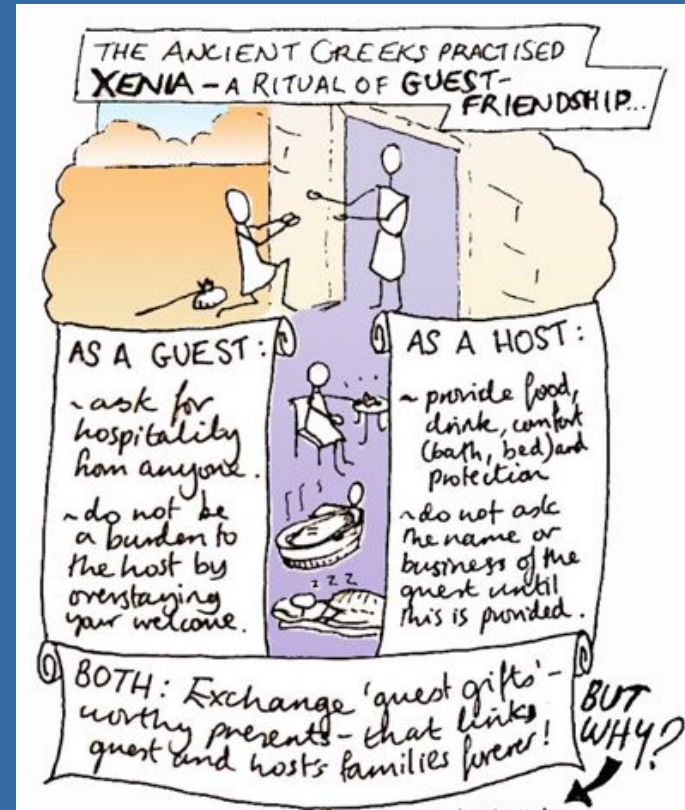 THE ANCIENT GREEKS PRACTISED
XENIA – A RITUAL OF GUEST-
FRIENDSHIP...
AS A GUEST:
~ask for
hospitality
from anyone.
~do not be
a burden to
the host by
overstaying
your welcome.
AS A HOST:
~provide food,
drink, comfort
(bath, bed) and
protection
~do not ask
the name or
business of the
guest until
this is provided.
zzz
BOTH: Exchange 'guest gifts' –
worthy presents – that links
guest and hosts families forever!
BUT
WHY?